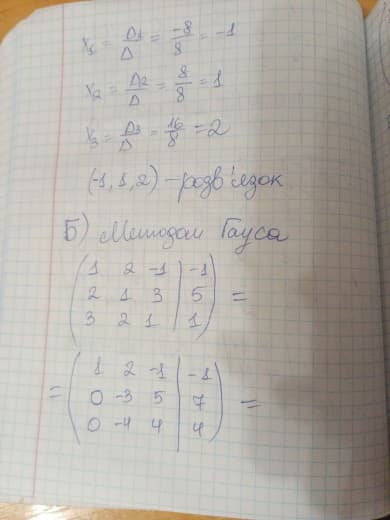 x₁ = Δ1/Δ = -8/8 = -1
x₂ = Δ2/Δ = 8/8 = 1
x₃ = Δ3/Δ = 16/8 = 2
(-1, 1, 2) – розв'язок
Б) Методом Гауса
( 1 2 -1 | -1 )
( 2 1 3 | 5 ) =
( 3 2 1 | 1 )
( 1 2 -1 | -1 )
= ( 0 -3 5 | 7 ) =
( 0 -4 4 | 4 )